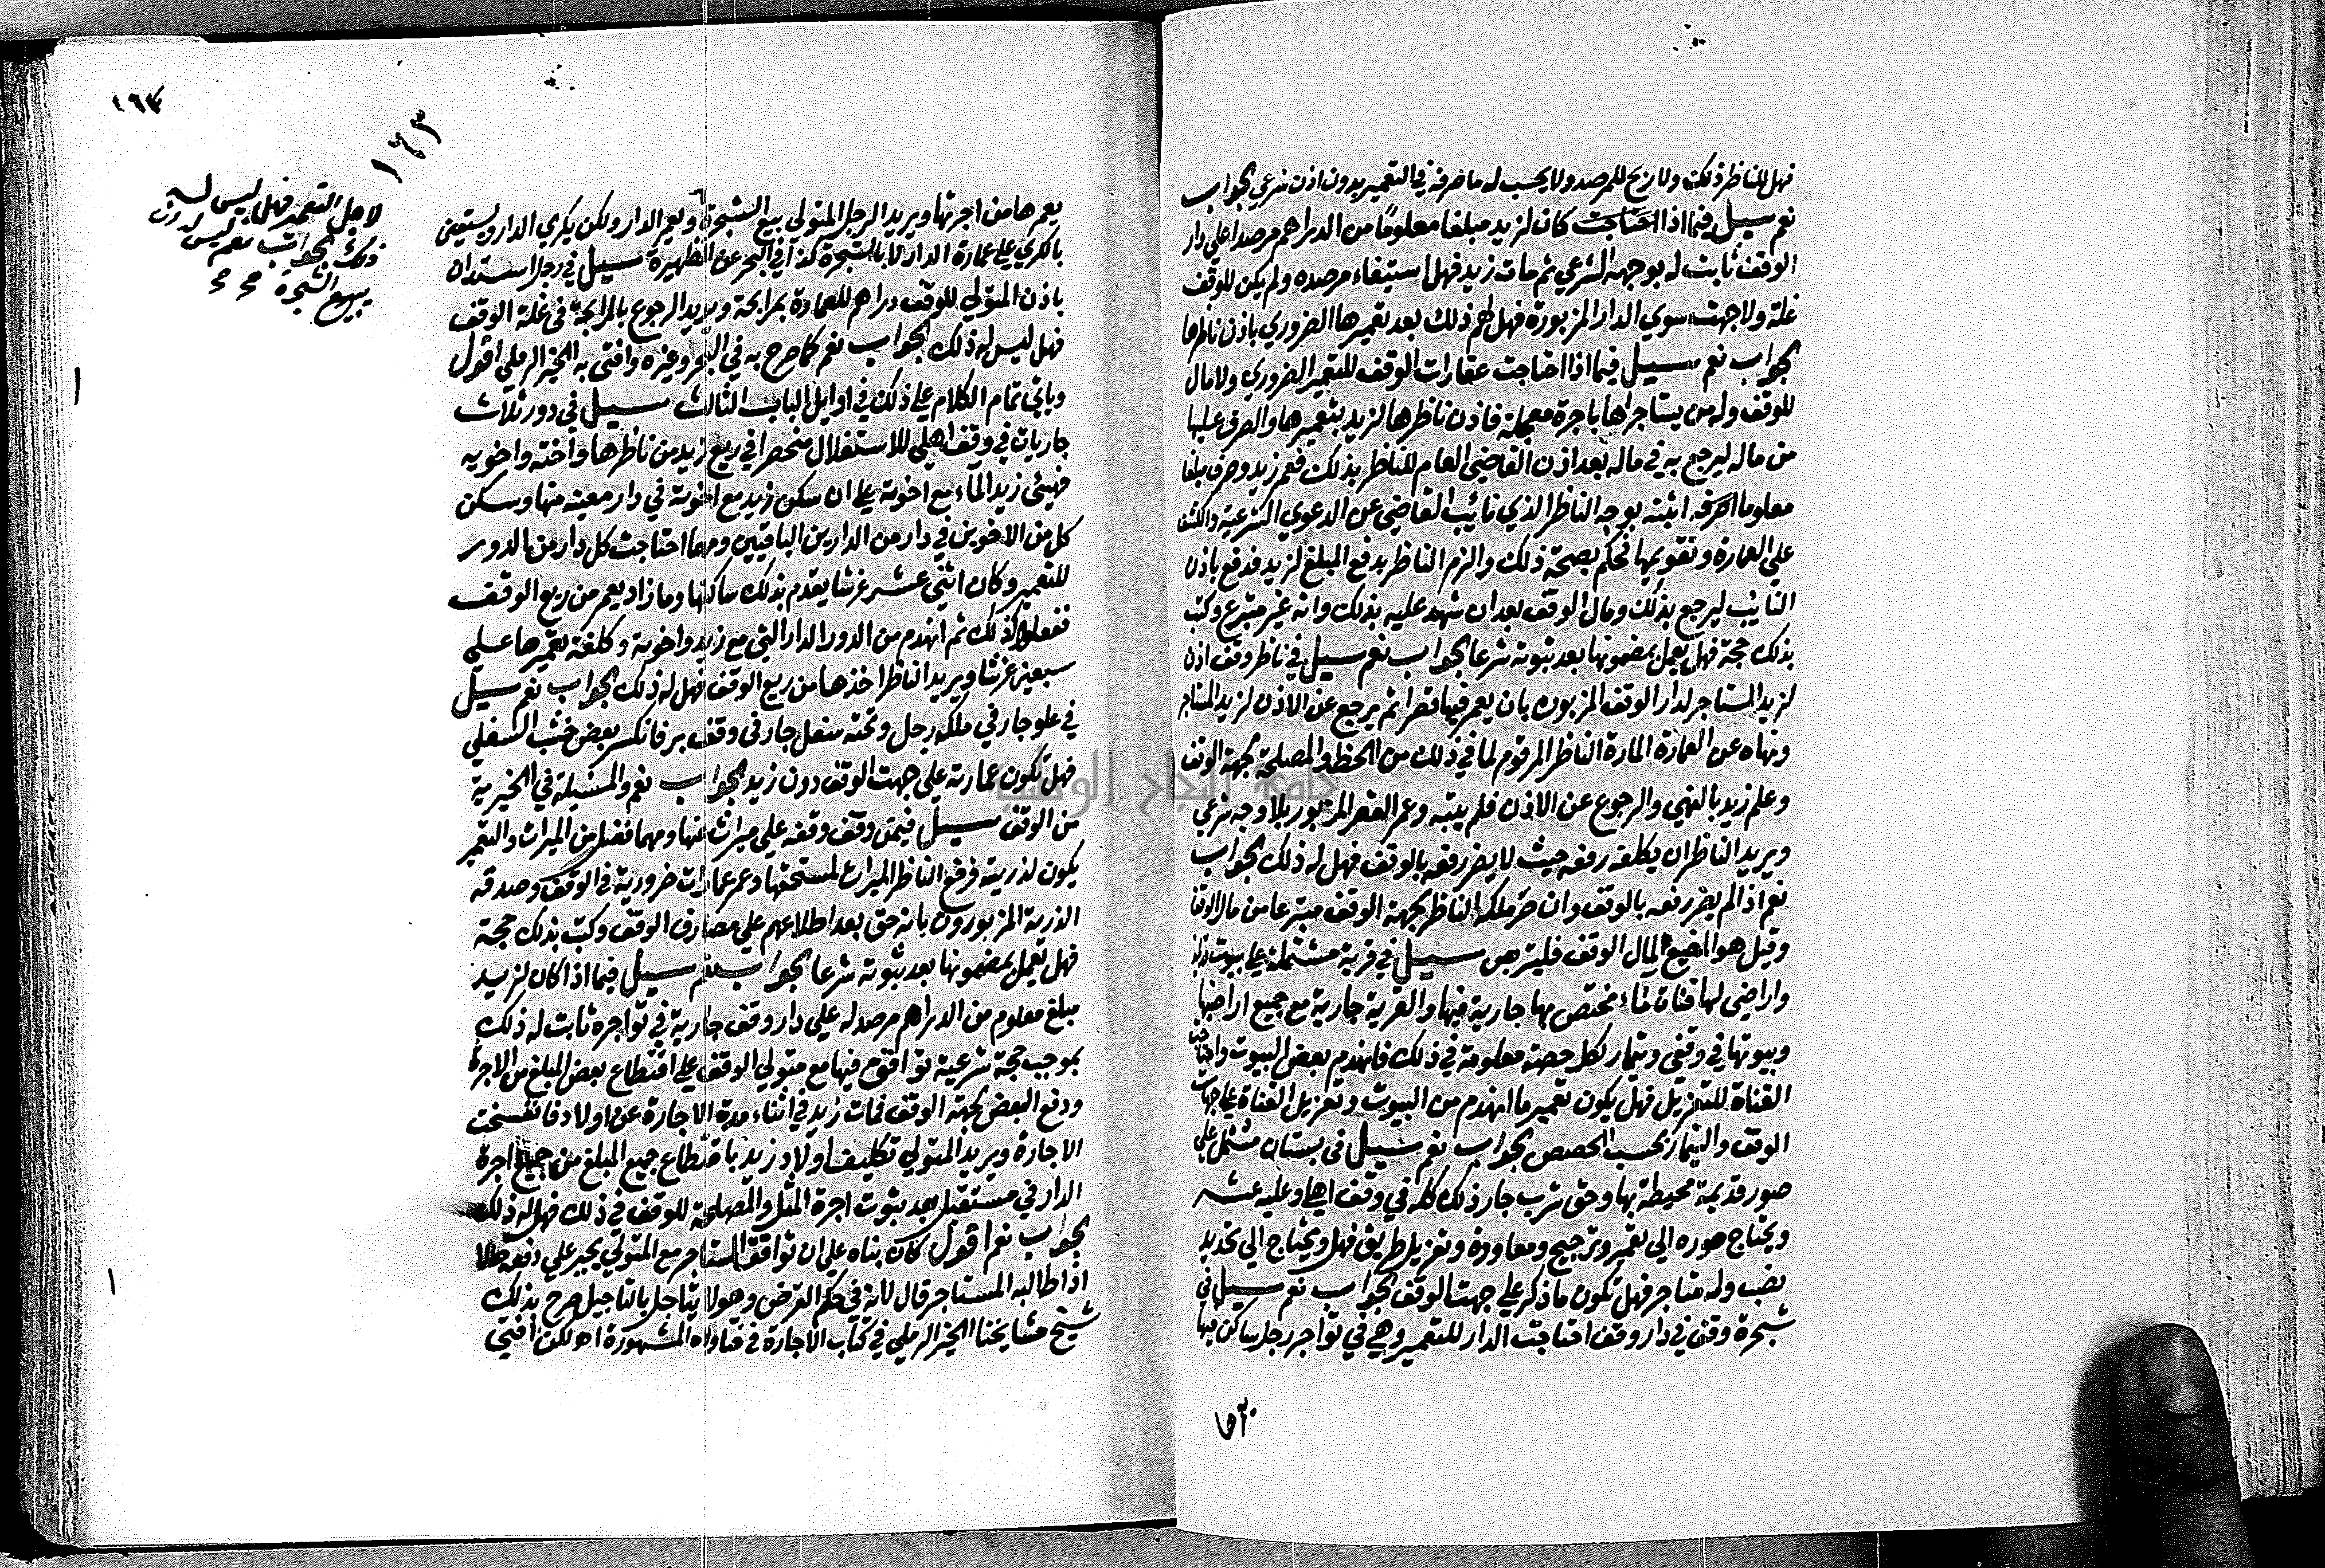 فهل للناظر ذلك ولا ربح للمرصد ولا يحسب له ما صرفه في التعمير بدون اذن شرعي الجواب
نعم سيل فيما اذا احتاجت كان لزيد مبلغا معلوما من الدراهم مرصدا علي دار
الوقف ثابت له بوجهه الشرعي ثم مات زيد فهل استيفاء مرصده ولم يكن للوقف
غلة ولا جهت سوي الدار المزبورة فهل لهم ذلك بعد تعميرها الضروري باذن ناظرها
الجواب نعم سيل فيما اذا احتاجت عقارات الوقف للتعمير الضروري ولا مال
للوقف وله من يستاجرها باجرة معجلة فاذن ناظرها لزيد بتعميرها والصرف عليها
من ماله ليرجع به في ماله بعد اذن القاضي العام للناظر بذلك فعمر زيد وصرف مبلغا
معلوما صرفه اثبته بوجه الناظر الذي نائب القاضي عن الدعوي الشرعية والكشف
علي العمارة وتقويمها فحكم بصحة ذلك والزم الناظر بدفع المبلغ لزيد فدفع باذن
النايب ليرجع بذلك ومال الوقف بعد ان شهد عليه بذلك وانه غير متبرع وكتب
بذلك حجة فهل يعمل بمضمونها بعد ثبوته شرعا الجواب نعم سيل في ناظر وقف اذن
لزيد المستاجر لدار الوقف المزبور بان يعمر فيها قصرا ثم يرجع عن الاذن لزيد المستاجر
ونهاه عن العمارة المارة الناظر المرقوم لما في ذلك من الحظ والمصلحة لجهة الوقف
وعلم زيد بالنهي والرجوع عن الاذن فلم ينته وعمر القصر المزبور بلا وجه شرعي
ويريد الناظر ان يكلفه رفعه حيث لا يضر رفعه بالوقف فهل له ذلك الجواب
نعم اذا لم يضر رفعه بالوقف وان ضر تملكه الناظر لجهة الوقف متبرعا من مال الوقف
وقيل هو المضيع لمال الوقف فليتربص سيل في قرية مشتملة علي بيوت
واراضي لها قناة ماء مختص بها جارية فيها والقرية جارية مع جميع اراضيها
وبيوتها في وقفي وتيمار لكل حصة معلومة في ذلك فانهدم بعض البيوت واحتاجت
القناة للتعزيل فهل يكون تعمير ما انهدم من البيوت وتعزيل القناة علي جهات
الوقف والتيمار بحسب الحصص الجواب نعم سيل في بستان مشتمل علي
صور قديمة محيطة بها وحق شرب جار ذلك كله في وقف اهلي وعليه عشر
ويحتاج صوره الي تعمير وترجيح ومعاودة وتعزيل طريق فهل ويحتاج الي تجديد
نصب وله مستاجر فهل تكون ما ذكر علي جهت الوقف الجواب نعم سيل في
شجرة وقف في دار وقف احتاجت الدار للتعمير وهي في تواجر رجل ساكن فيها
يعمرها من اجرتها ويريد الرجل المتولي بيع الشجرة ويعمر الدار ولكن يكري الدار ويستعين
بالكري علي عمارة الدار لا بالشجرة كذا في البحر عن الظهيرة سيل في رجل استدان
باذن المتولي للوقف دراهم للعمارة بمرابحة ويريد الرجوع بالمرابحة في غلة الوقف
فهل ليس له ذلك الجواب نعم كما صرح به في البحر وغيره وافتي به الخير الرملي اقول
وياتي تمام الكلام علي ذلك في اوايل الباب الثالث سيل في دور ثلاث
جاريات في وقف اهلي للاستغلال منحصرا في ريع زيد من ناظرها واخته واخويه
فهيئ زيد الماء مع اخوته علي ان سكن زيد مع اخوته في دار معينة منها وسكن
كل من الاخوين في دار من الدارين الباقيين ومهما احتاجت كل دار من الدور
للتعمير وكان اثني عشر غرشا يقدم بذلك ساكنها وما زاد يعمر من ريع الوقف
ففعلوا كذلك ثم انهدم من الدور الدار التي مع زيد واخوته وكلفة تعميرها علي
سبعين غرشا ويريد الناظر اخذها من ريع الوقف فهل له ذلك الجواب نعم سيل
في علو جار في ملك رجل وتحته سفل جار في وقف بر فانكسر بعض خشب السفلي
فهل تكون عمارته علي جهت الوقف دون زيد الجواب نعم والمسئيلة في الخيرية
من الوقف سيل فيمن وقف وقفه علي ميراث عنها ومهما فضل من الميراث والتعمير
يكون لذريته فرفع الناظر الميراث لمستحقها وعمر عمارات ضرورية في الوقف وصدقه
الذرية المزبورون بانه حق بعد اطلاعهم علي مصارف الوقف وكتب بذلك حجة
فهل تعمل بمضمونها بعد ثبوته شرعا الجواب نعم سيل فيما اذا كان لزيد
مبلغ معلوم من الدراهم مرصد له علي دار وقف جارية في تواجره ثابت له ذلك
بموجب حجة شرعية توافق فيها مع متولي الوقف علي اقتطاع بعض المبلغ من الاجرة
ودفع البعض لجهة الوقف فمات زيد في اثناء مدة الاجارة عن اولاد فانفسخت
الاجارة ويريد المتولي تكليف اولاد زيد باقتطاع جميع المبلغ من جميع اجرة
الدار في مستقبل بعد ثبوت اجرة المثل والمصلحة للوقف في ذلك فهل له ذلك
الجواب نعم اقول كان بناه علي ان توافق المستاجر مع المتولي يجبر علي دفعه حالا
اذا طالبه المستاجر قال لانه في حكم القرض وهو لا يتاجل بالتاجيل صرح بذلك
شيخ مشايخنا الخير الرملي في كتاب الاجارة في فتاواه المشهورة اهـ لكن افتي
١٦٣
لاجل التعمير فهل ليس له
ذلك الجواب نعم ليس له
ببيع الشجرة